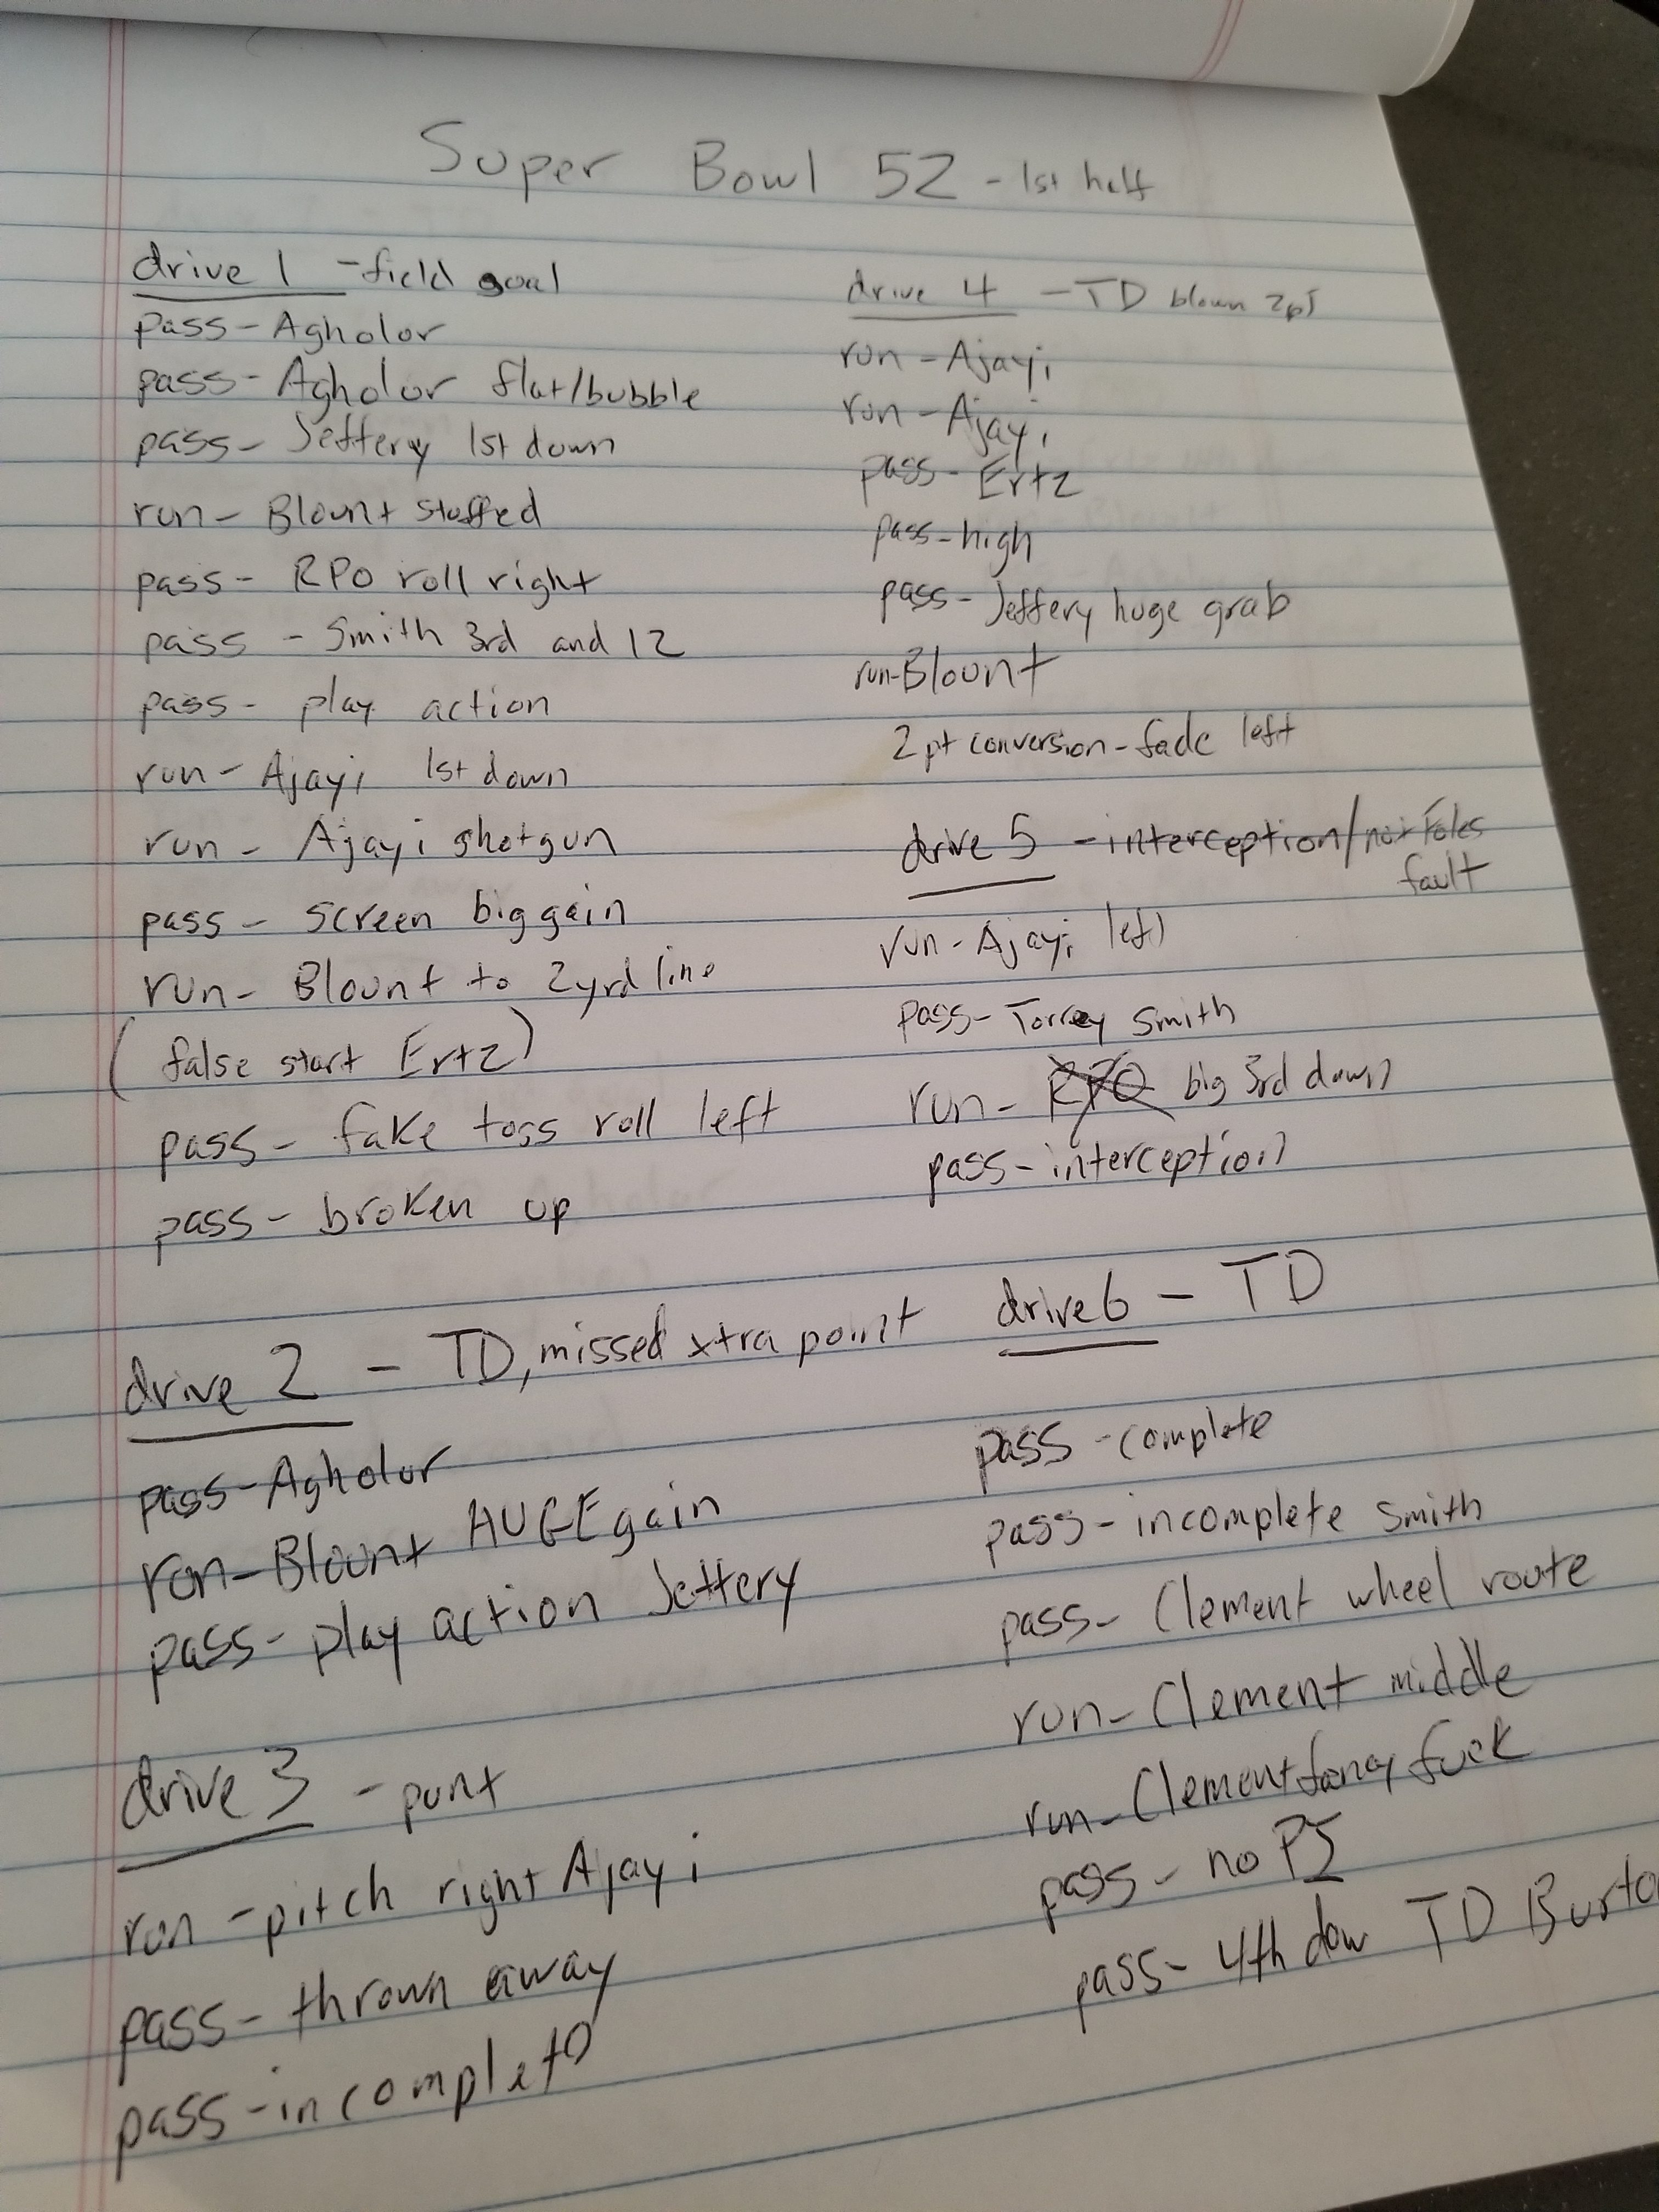 Super Bowl 52 - 1st half
drive 1 - field goal
pass - Agholor
pass - Agholor flat/bubble
pass - Jeffery 1st down
run - Blount stuffed
pass - RPO roll right
pass - Smith 3rd and 12
pass - play action
run - Ajayi 1st down
run - Ajayi shotgun
pass - screen big gain
run - Blount to 2yrd line
(false start Ertz)
pass - fake toss roll left
pass - broken up
drive 2 - TD, missed xtra point
pass - Agholor
run - Blount HUGE gain
pass - play action Jeffery
drive 3 - punt
run - pitch right Ajayi
pass - thrown away
pass - incomplete
drive 4 - TD blown 2pt
run - Ajayi
run - Ajayi
pass - Ertz
pass - high
pass - Jeffery huge grab
run - Blount
2 pt conversion - fade left
drive 5 - interception/not Foles
fault
run - Ajayi left
pass - Torrey Smith
run - RPO big 3rd down
pass - interception
drive 6 - TD
pass - complete
pass - incomplete Smith
pass - Clement wheel route
run - Clement middle
run - Clement fancy fuck
pass - no PI
pass - 4th dow TD Burto